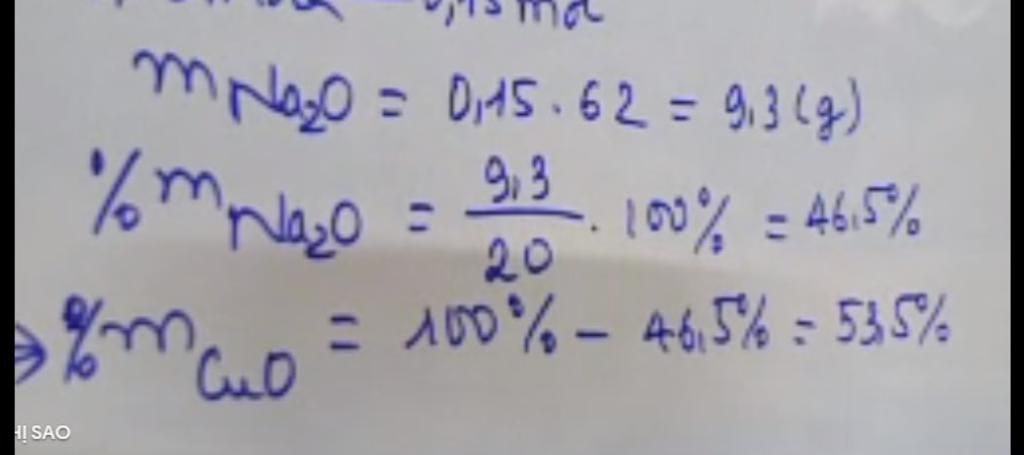 0,15 mol
mNa2O = 0,15 . 62 = 9,3 (g)
%mNa2O = 9,3/20 . 100% = 46,5%
⇒ %mCuO = 100% - 46,5% = 53,5%
HỊ SAO